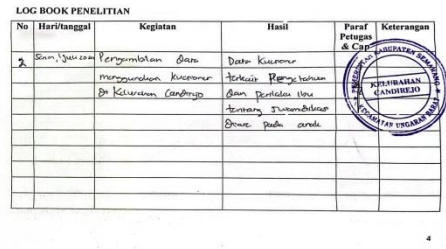 LOG BOOK PENELITIAN
No Hari/tanggal Kegiatan Hasil Paraf Petugas & Cap Keterangan
2 Senin, 1 Juli Pengambilan Data Data Kuesioner
menggunakan kuesioner terkait Pengetahuan
di Kelurahan Candirejo dan perilaku Ibu
tentang Swamedikasi
Diare pada anak
PEMERINTAH KABUPATEN SEMARANG
KELURAHAN
CANDIREJO
KECAMATAN UNGARAN BARAT
4